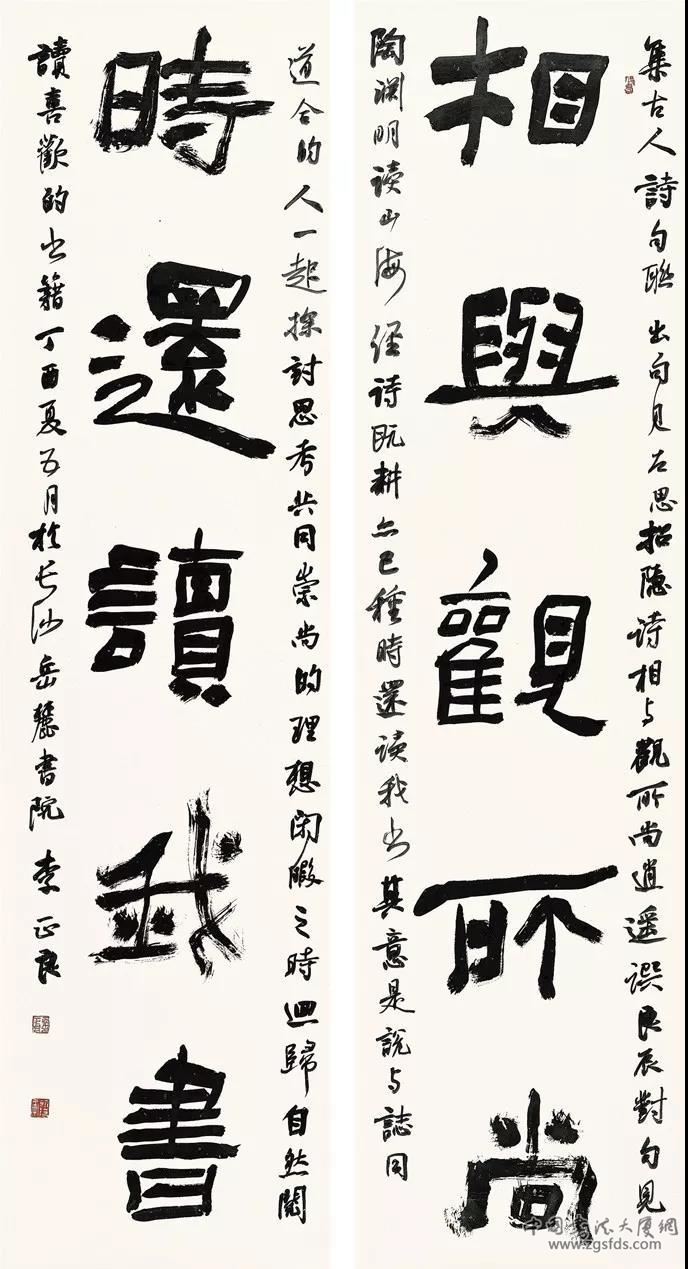 集古人詩句聯出句見左思招隐诗相与觀所尚逍遥譔良辰對句見
相與觀所尚
陶渊明读山海经诗既耕亦已種時還读我书其意是説与誌同
道合的人一起探討思考共同崇尚的理想闲暇之時迴歸自然閱
時還讀我書
讀喜歡的书籍丁酉夏五月於长沙岳麓書院李正良
中国书法大厦網
www.zgsfds.com